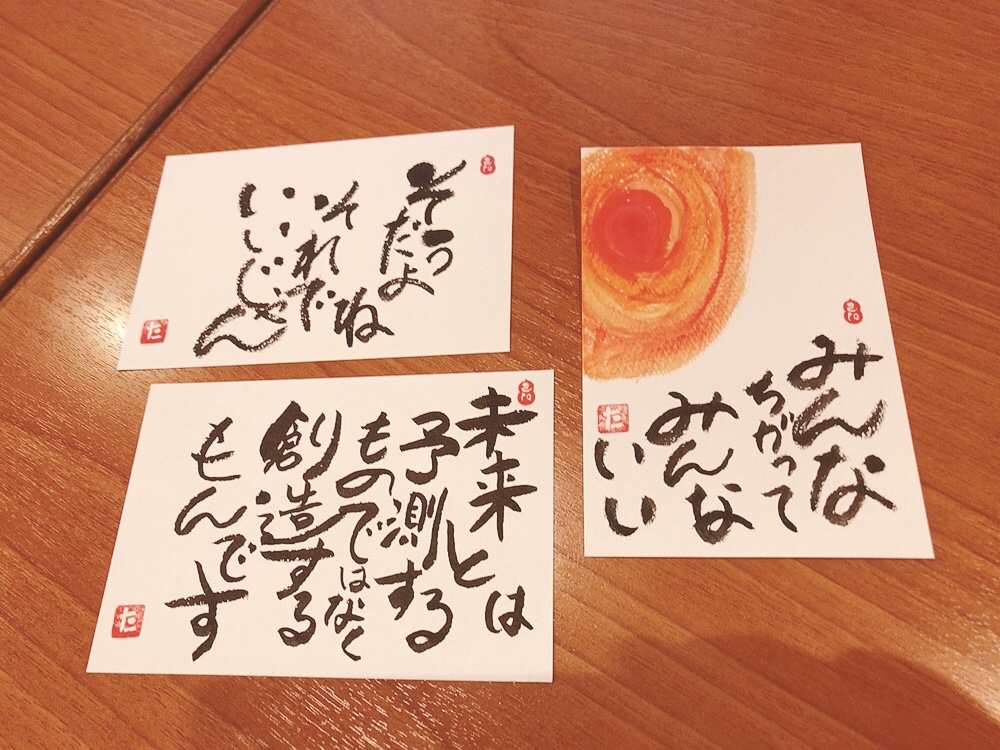 そうだよ
ね
それで
いいじゃん
た
未来とは
予測する
ものではなく
創造する
もんです
みんな
ちがって
みんな
いい
た